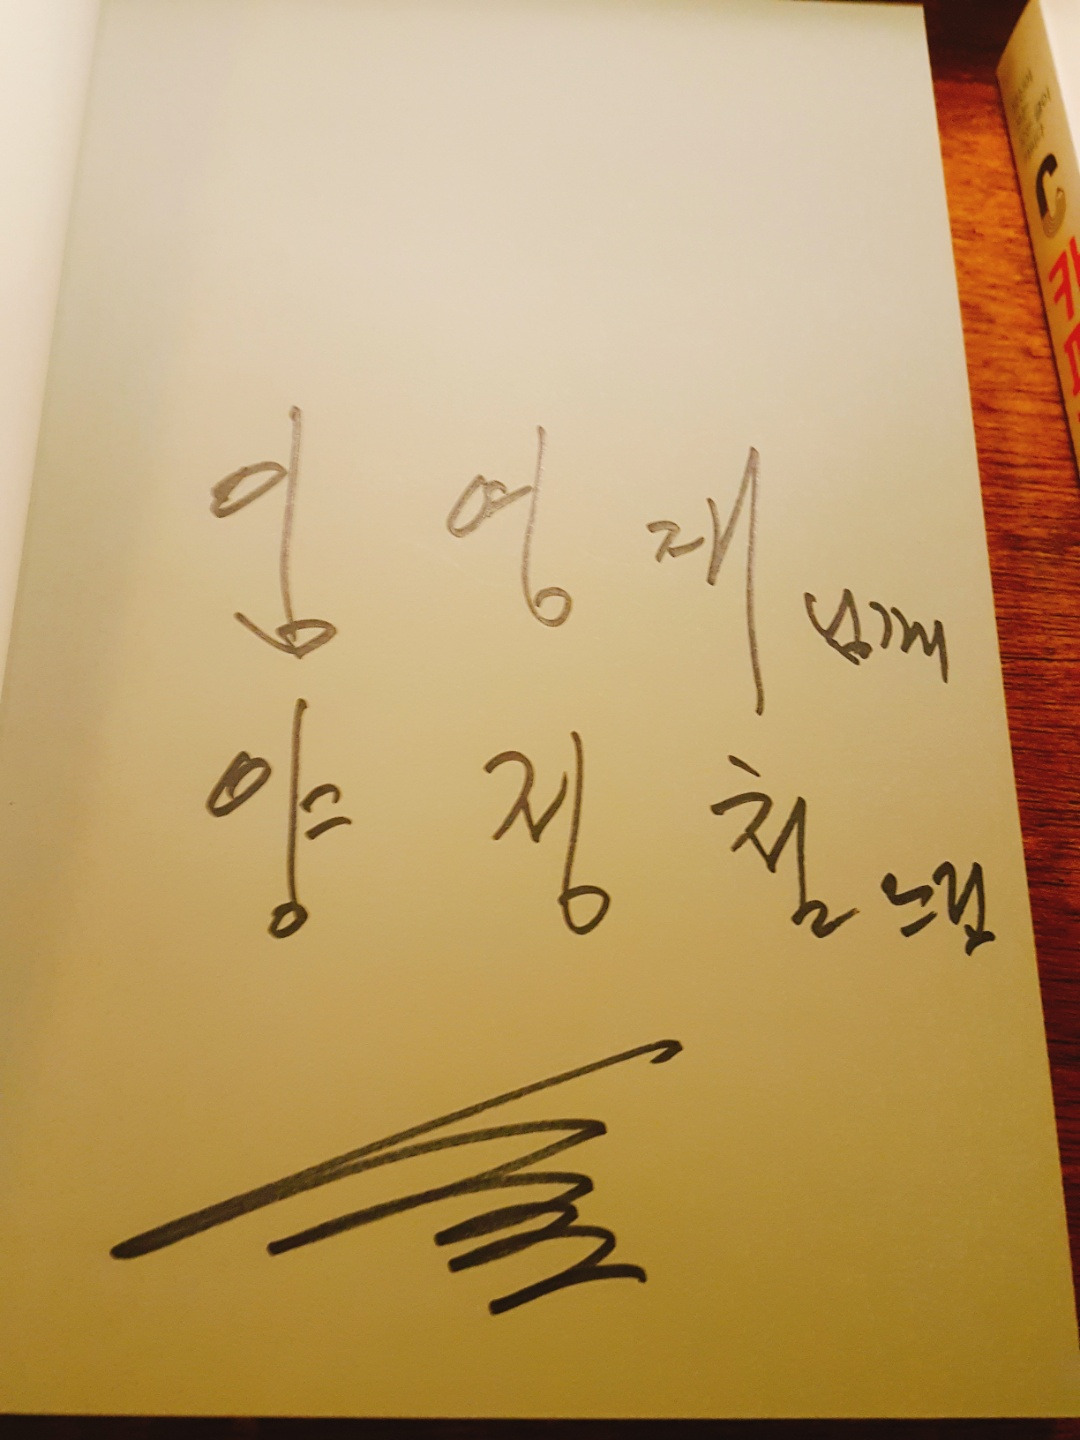 임영재 님께
양정철 드림
카